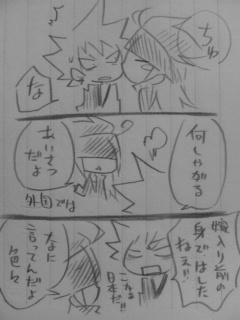 ちゅ
な
何しやがる
あいさつ
だよ
外国では
嫁入り前の
身ではした
ねえ!!
これは
日本だ!!
なに
言ってんだよ